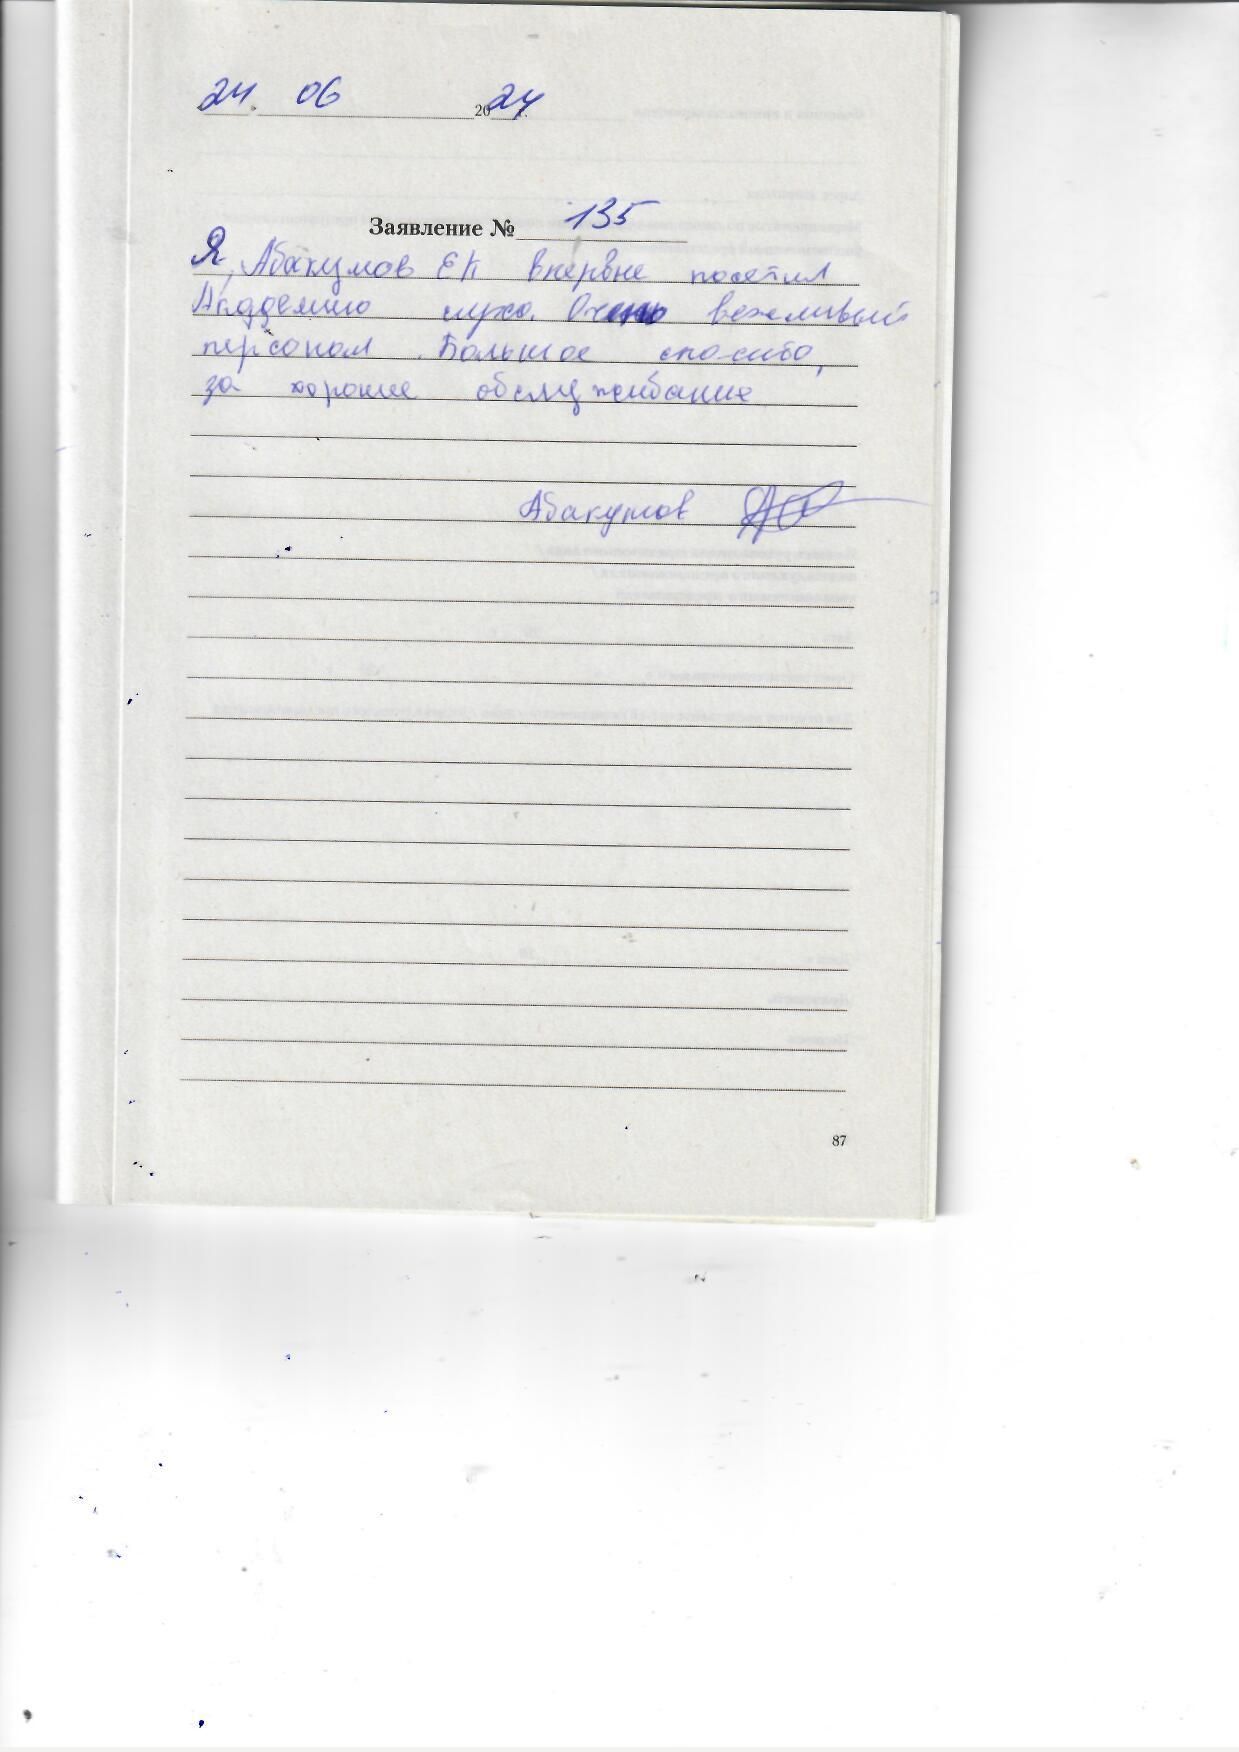 24. 06 2024 г.
Заявление № 135
Я, Абакумов ЕК впервые посетил
Академию слуха. Очень вежливый
персонал. Большое спасибо,
за хорошее обслуживание
Абакумов
87